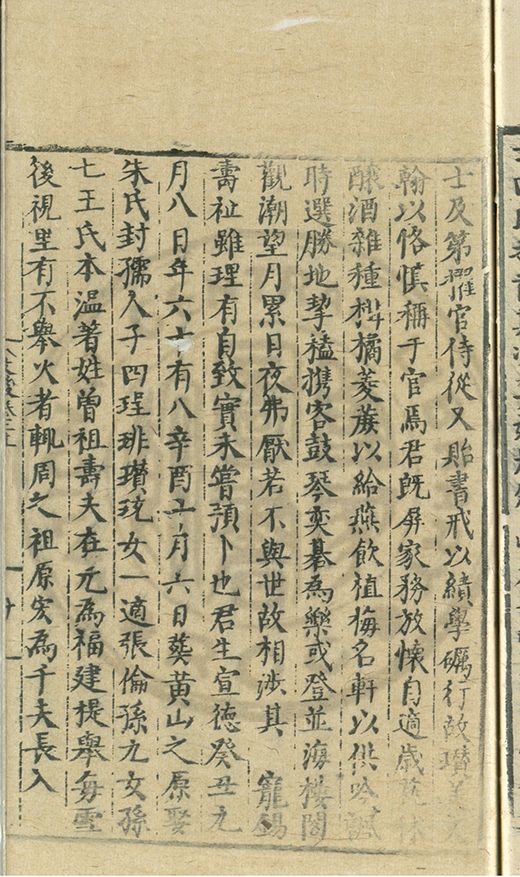 士及第擢官侍從又貽書戒以績學礪行故瓚
翰以恪慎稱于官焉君既屏家務放懷自適歲
釀酒雜種柑橘菱蔗以給燕飲植梅名軒以供吟
時選勝地挈榼携客鼓琴奕碁為樂或登並海樓閣
觀潮望月累日夜弗厭若不與世故相涉其 寵錫
壽祉雖理有自致實未嘗預卜也君生宣德癸丑九
月八日年六十有八辛酉 月六日葬黄山之原娶
朱氏封孺人子四珵琲瓚珫女一適張倫孫九女孫
七王氏本温著姓曾祖壽夫在元為福建提舉每雪
後視里有不舉火者輒周之祖原宏為千夫長入